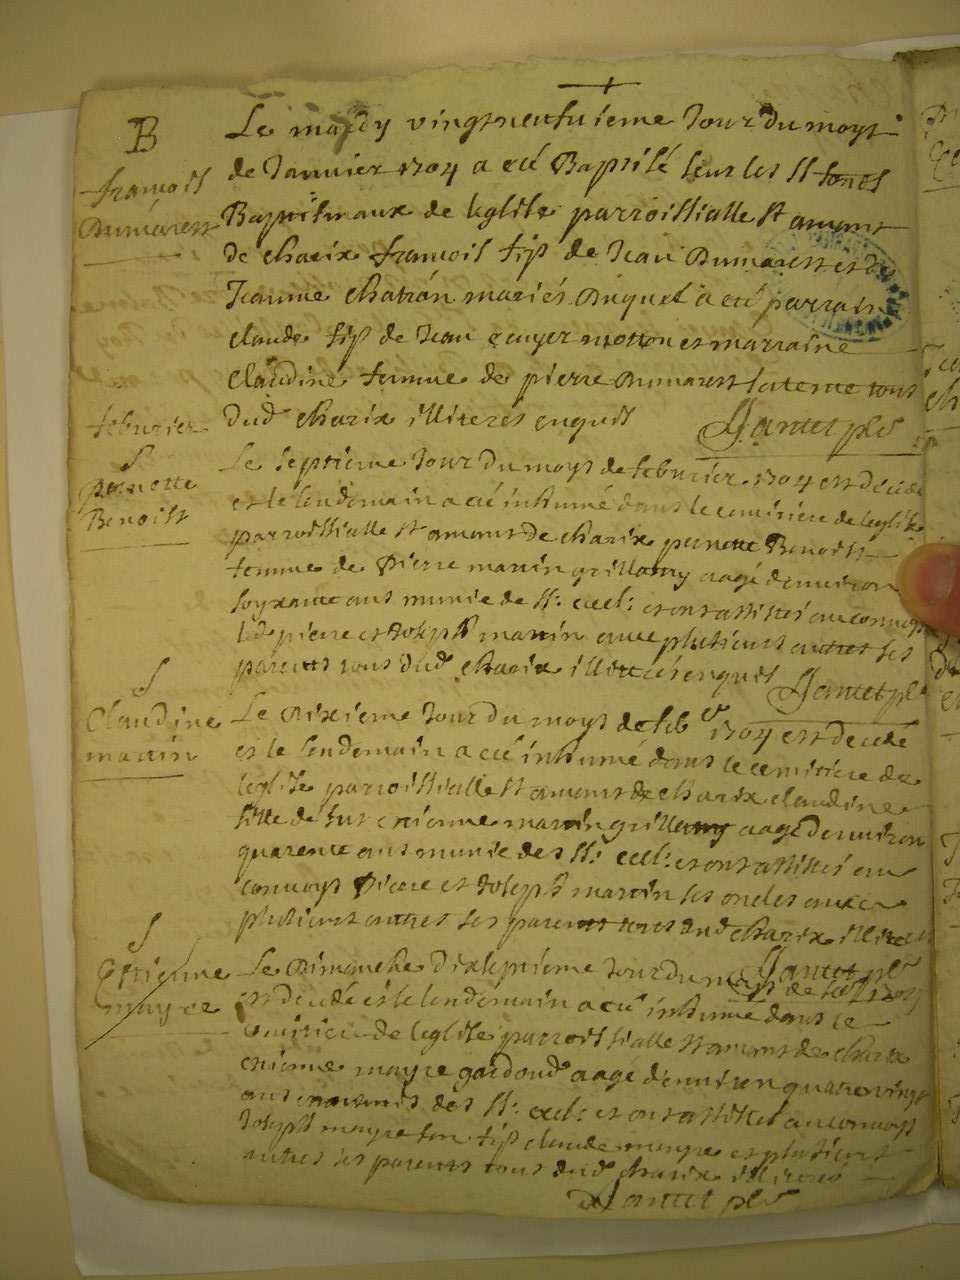 B
françois
Dumarest
Le mardy vingtneufuieme Jour Du moys
de Januier 1704 a eté Baptisé seur les St fonts
Baptismaux de leglise parroissialle St amant
de charix françois fils de Jean Dumarest et de
Jeanne chatron mariés Duquel a eté parrain
claude fils de Jean mottion et marraine
Claudine femme de pierre Dumarest tous
dud charix illiterés enquis
Jantet pbr
feburier
S
pernette
Benoist
Le septieme Jour Du moys de feburier 1704 est decede
et le lendemain a eté inhumé dans le cemitiere de leglise
parroissialle St amant de charix pernette Benoist
femme de Pierre martin grillamy aagé denuiron
soyxante ans munie de Ss: ecel: et ont assistés au conuoys
led pierre et Joseph martin auec plusieurs autres ses
parents tous dud charix illiterés enquis
Jantet pbr
S
Claudine
martin
Le Dixieme Jour Du moys de feb 1704 est decede
et le lendemain a eté inhumé dans le cemitiere de
leglise parroissialle St amant de charix claudine
fille de fut etienne martin grillamy aagé denuiron
quarente ans munie des Ss: ecel: et ont assistés au
conuoys Pierre et Joseph martin ses oncles auec
plusieurs autres ses parents tous dud charix illiterés
Jantet pbr
S
Estienne
mayre
Le Dimanche dixseptieme Jour Du moys de feb 1704
est decedé et le lendemain a eté inhumé dans le
cemitiere de leglise parroissialle St amant de charix
etienne mayre aagé denuiron quatre vingt
ans des Ss: ecel: et ont assistés au conuoys
Joseph mayre son fils claude mayre et plusieurs
autres ses parents tous dud charix illiterés
Jantet pbr